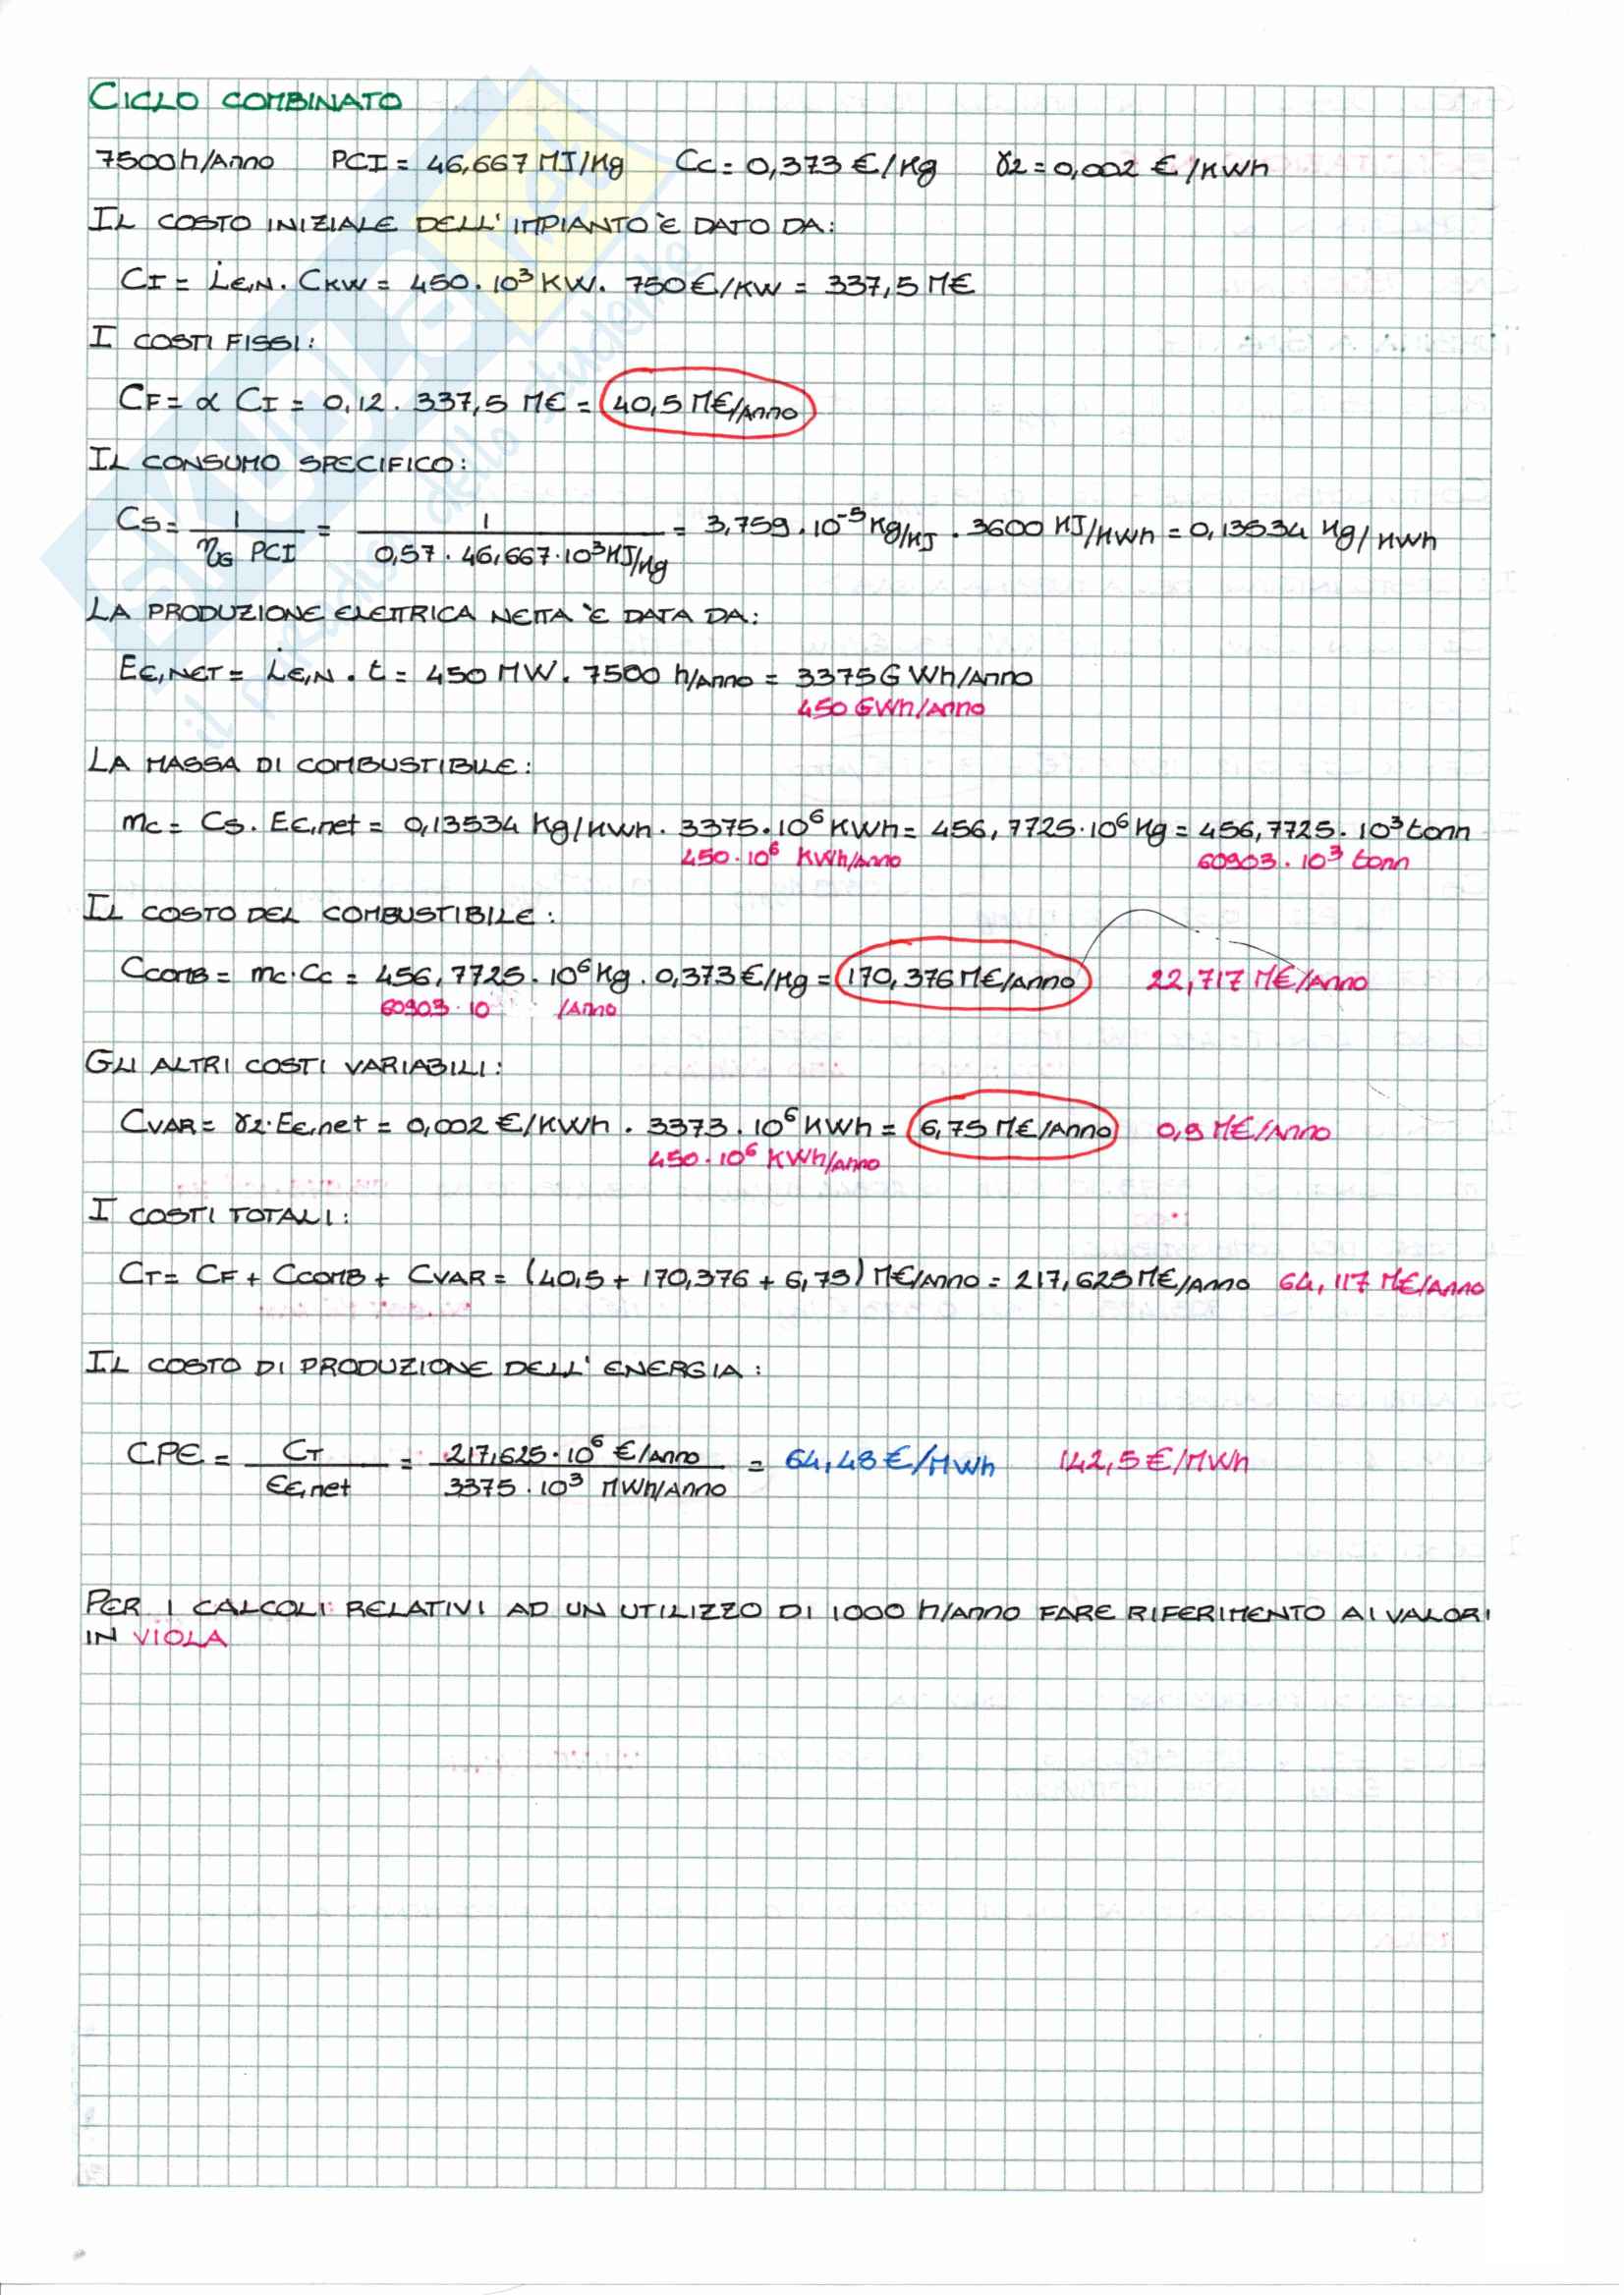 CICLO COMBINATO
7500 h/Anno PCI = 46,667 MJ/Kg Cc = 0,373 €/Kg γ2 = 0,002 €/KWh
IL COSTO INIZIALE DELL' IMPIANTO È DATO DA:
CI = L̇E,N · CKW = 450 · 10³ KW · 750 €/KW = 337,5 M€
I COSTI FISSI:
CF = α CI = 0,12 · 337,5 M€ = 40,5 M€/Anno
IL CONSUMO SPECIFICO:
CS = 1 / (ηG PCI) = 1 / (0,57 · 46,667 · 10³ KJ/Kg) = 3,759 · 10⁻⁵ Kg/KJ · 3600 KJ/KWh = 0,13534 Kg/KWh
LA PRODUZIONE ELETTRICA NETTA È DATA DA:
EE,NET = L̇E,N · t = 450 MW · 7500 h/Anno = 3375 GWh/Anno
450 GWh/Anno
LA MASSA DI COMBUSTIBILE:
mc = Cs · EE,net = 0,13534 Kg/KWh · 3375 · 10⁶ KWh = 456,7725 · 10⁶ Kg = 456,7725 · 10³ tonn
450 · 10⁶ KWh/Anno 60903 · 10³ tonn
IL COSTO DEL COMBUSTIBILE:
CCOMB = mc · Cc = 456,7725 · 10⁶ Kg · 0,373 €/Kg = 170,376 M€/Anno 22,717 M€/Anno
60903 · 10 /Anno
GLI ALTRI COSTI VARIABILI:
CVAR = γ2 · EE,net = 0,002 €/KWh · 3373 · 10⁶ KWh = 6,75 M€/Anno 0,9 M€/Anno
450 · 10⁶ KWh/Anno
I COSTI TOTALI:
CT = CF + CCOMB + CVAR = (40,5 + 170,376 + 6,75) M€/Anno = 217,625 M€/Anno 64,117 M€/Anno
IL COSTO DI PRODUZIONE DELL' ENERGIA:
CPE = CT / EE,net = 217,625 · 10⁶ €/Anno / 3375 · 10³ MWh/Anno = 64,48 €/MWh 142,5 €/MWh
PER I CALCOLI RELATIVI AD UN UTILIZZO DI 1000 h/ANNO FARE RIFERIMENTO AI VALORI
IN VIOLA